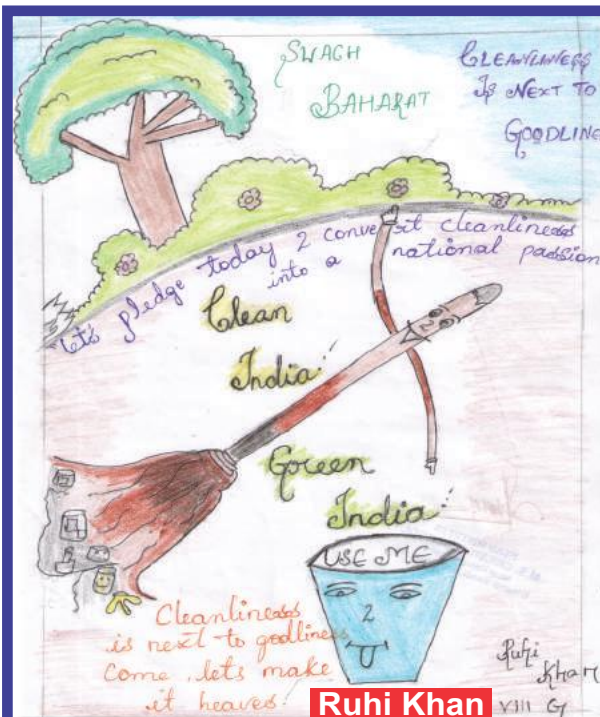 SWAGH
BAHARAT
CLEANLINESS
IS NEXT TO
GOODLINE
Let's pledge today 2 convert it cleanliness
into a national passion
Clean
India!
Green
India!
USE ME
2
Cleanliness
is next to godliness
Come, lets make
it heaves!
Ruhi
Khan
VIII G
Ruhi Khan